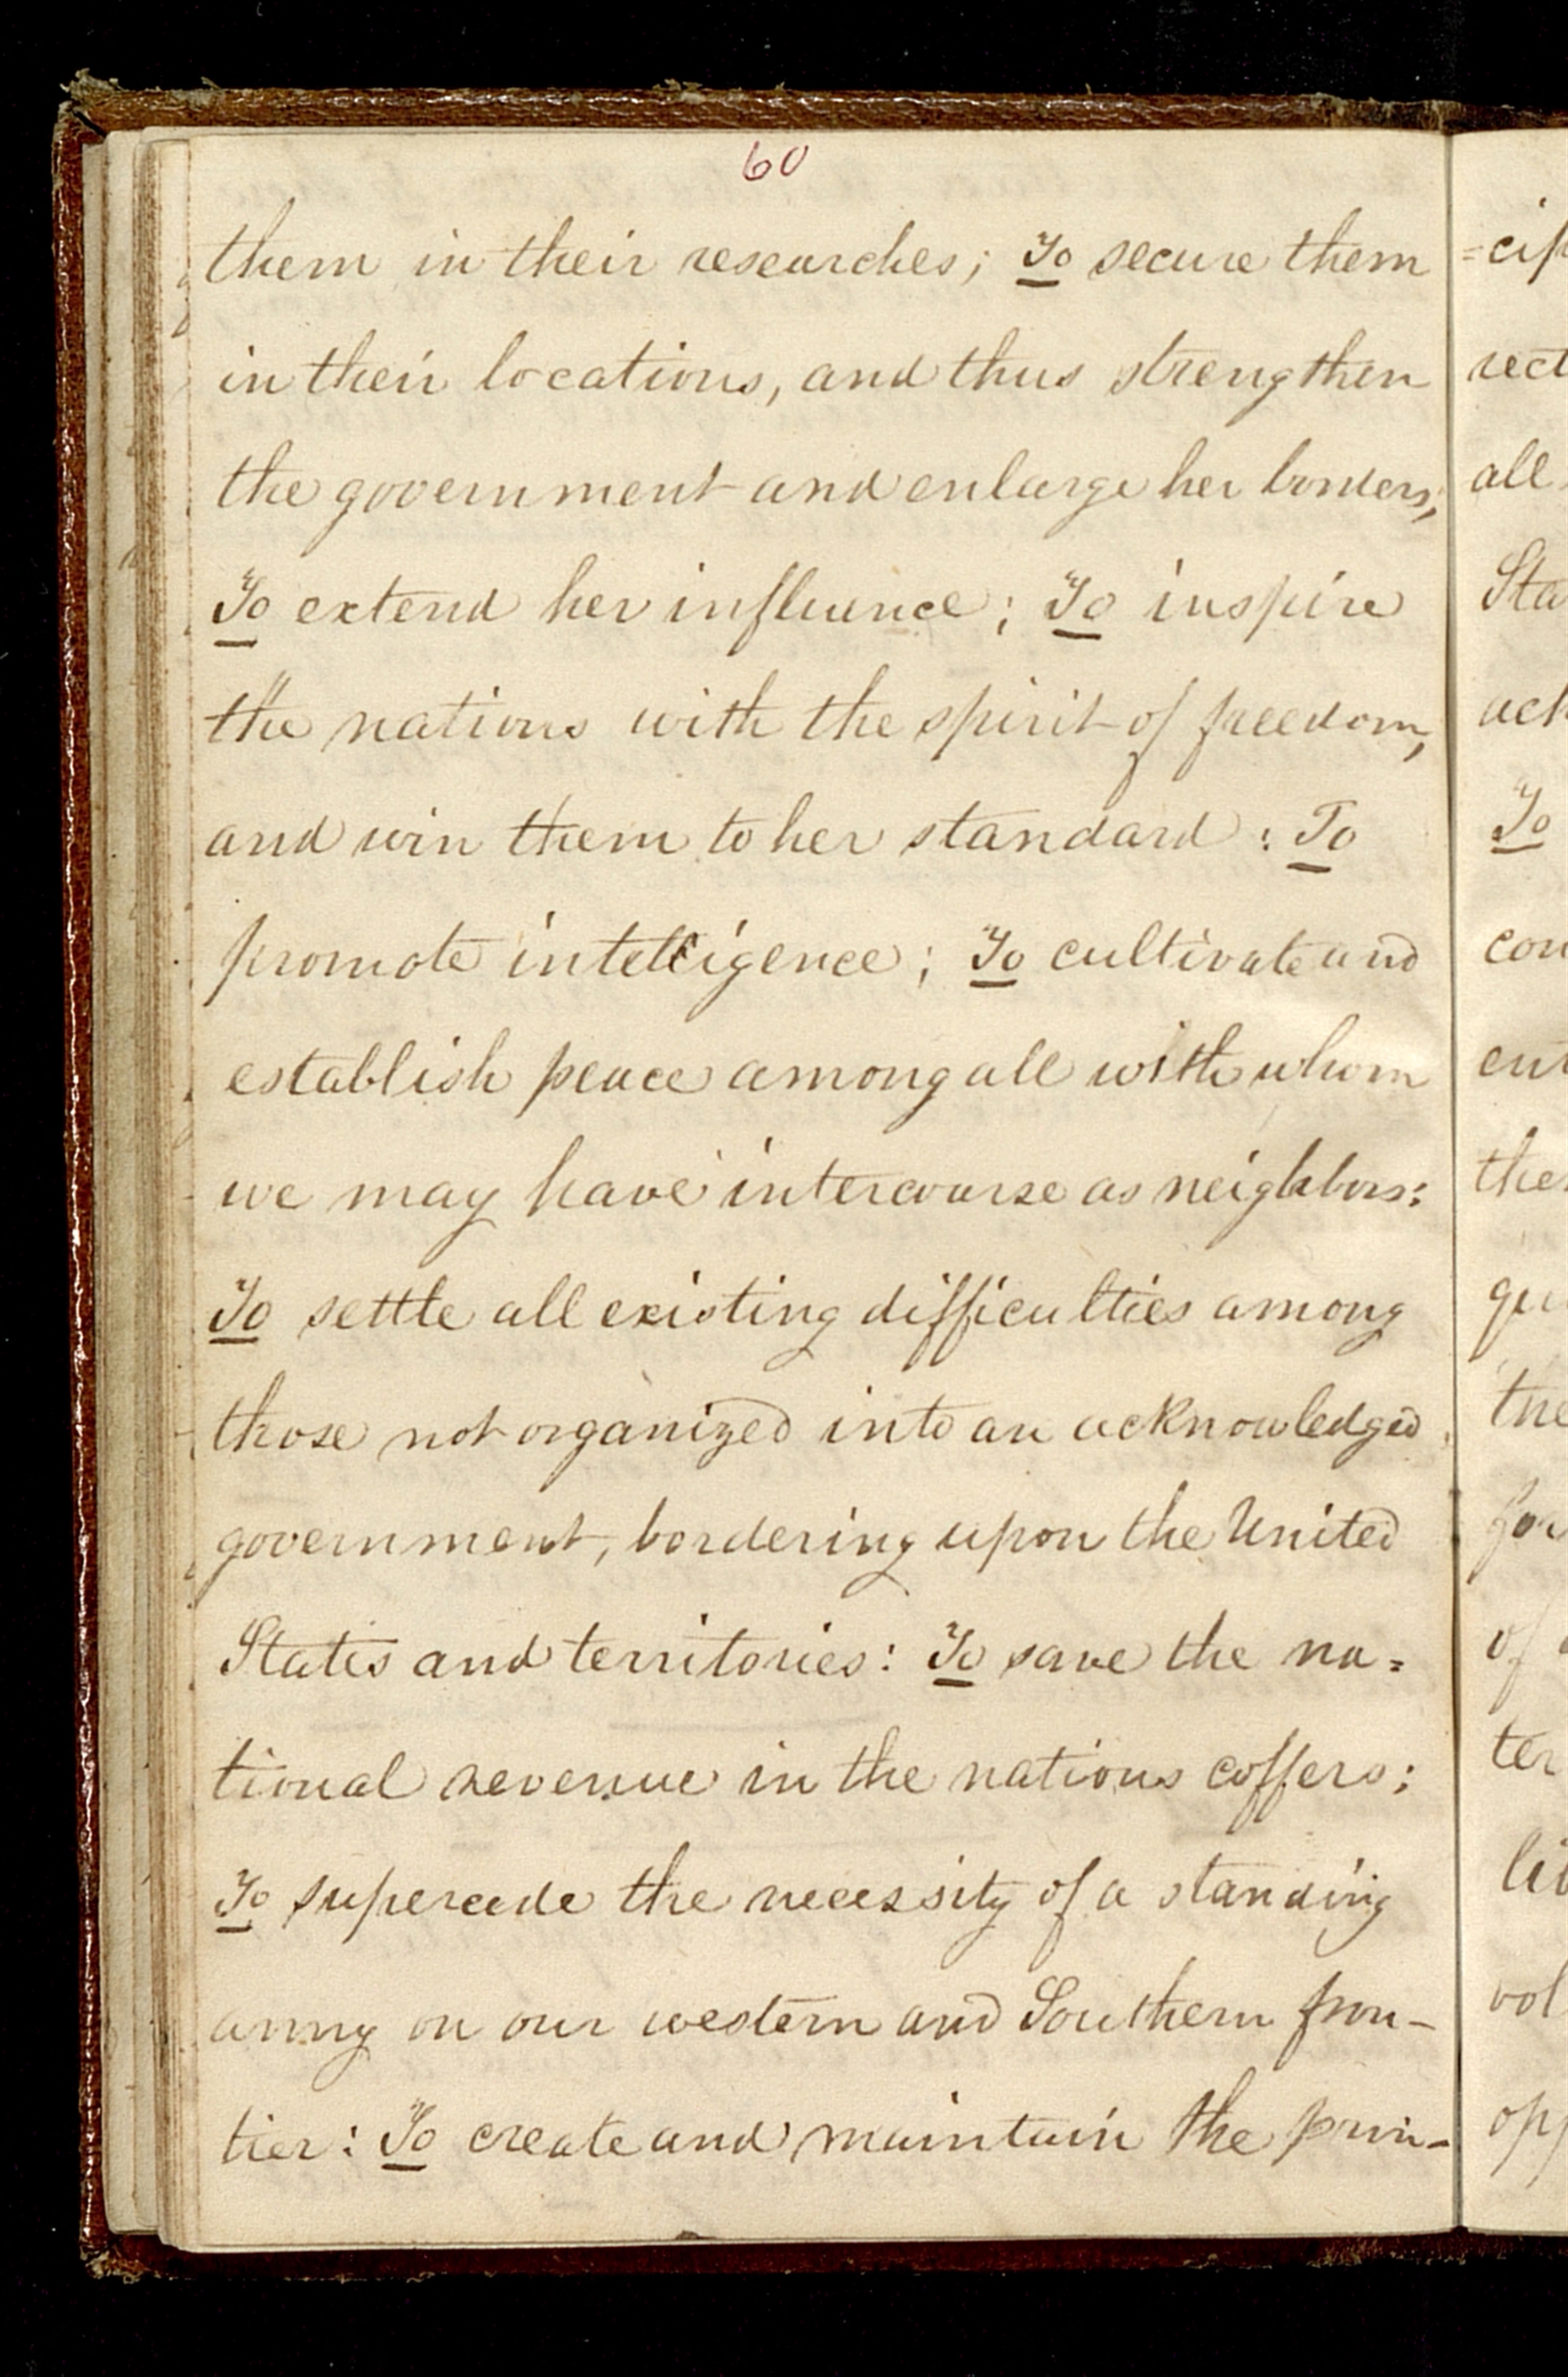 60
them in their researches; To secure them
in their locations, and thus strengthen
the government and enlarge her borders;
To extend her influence; To inspire
the nations with the spirit of freedom,
and win them to her standard: To
promote intelligence; To cultivate and
establish peace among all with whom
we may have intercourse as neighbors:
To settle all existing difficulties among
those not organized into an acknowledged
government, bordering upon the United
States and territories: To save the na=
tional revenue in the nations coffers;
To supercede the necessity of a standing
army on our western and Southern fron-
tier: To create and maintain the prin-
=cip
rect
all
Sta
ack
To
con
ent
the
the
of
ter
vol
opp